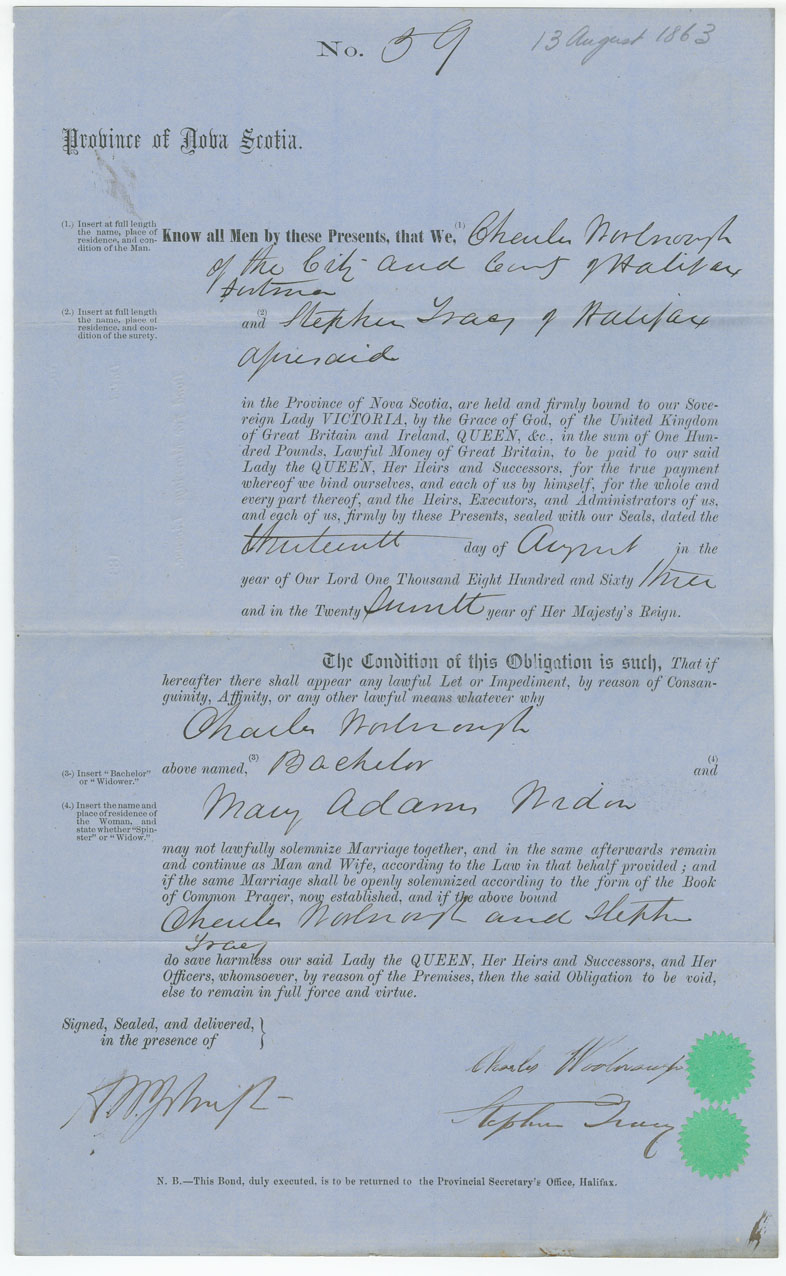 No. 59
13 August 1863
Province of Nova Scotia.
(1.) Insert at full length
the name, place of
residence, and con-
dition of the Man.
Know all Men by these Presents, that We, (1) Charles
of the City and County of Halifax
(2.) Insert at full length
the name, place of
residence, and con-
dition of the surety.
(2)
and Stephen Tracy of Halifax
aforesaid
in the Province of Nova Scotia, are held and firmly bound to our Sove-
reign Lady VICTORIA, by the Grace of God, of the United Kingdom
of Great Britain and Ireland, QUEEN, &c., in the sum of One Hun-
dred Pounds, Lawful Money of Great Britain, to be paid to our said
Lady the QUEEN, Her Heirs and Successors, for the true payment
whereof we bind ourselves, and each of us by himself, for the whole and
every part thereof, and the Heirs, Executors, and Administrators of us,
and each of us, firmly by these Presents, sealed with our Seals, dated the
thirteenth day of August in the
year of Our Lord One Thousand Eight Hundred and Sixty three
and in the Twenty seventh year of Her Majesty's Reign.
The Condition of this Obligation is such, That if
hereafter there shall appear any lawful Let or Impediment, by reason of Consan-
guinity, Affinity, or any other lawful means whatever why
Charles
(3.) Insert "Bachelor"
or "Widower."
above named, (3) Bachelor (4) and
(4.) Insert the name and
place of residence of
the Woman, and
state whether "Spin-
ster" or "Widow."
Mary Adams Widow
may not lawfully solemnize Marriage together, and in the same afterwards remain
and continue as Man and Wife, according to the Law in that behalf provided ; and
if the same Marriage shall be openly solemnized according to the form of the Book
of Common Prager, now established, and if the above bound
Charles and Stephen
Tracy
do save harmless our said Lady the QUEEN, Her Heirs and Successors, and Her
Officers, whomsoever, by reason of the Premises, then the said Obligation to be void,
else to remain in full force and virtue.
Signed, Sealed, and delivered,
in the presence of
Charles
Stephen Tracy
N. B.—This Bond, duly executed, is to be returned to the Provincial Secretary's Office, Halifax.